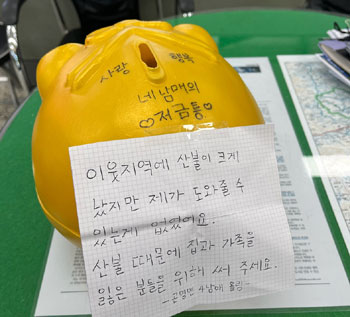 사랑 행복
네 남매의
♡저금통♡
이웃지역에 산불이 크게
났지만 제가 도와줄 수
있는게 없었어요.
산불 때문에 집과 가족을
잃은 분들을 위해 써 주세요.
4남매 올림